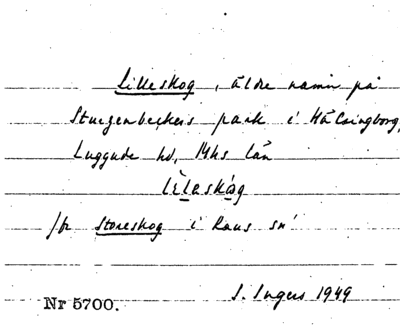 Lilleskog, äldre namn på
Sturzenbeckers park i Hälsingborg,
Luggude hd, Mhs län
lìleskåg
jfr Storeskog i Raus sn
Nr 5700.
I. Ingers 1949